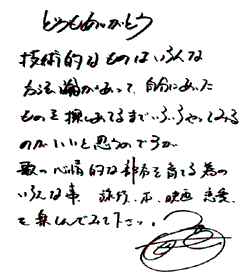 どうもありがとう
技術的なものはいろんな
方法論があって、自分にあった
ものを探しあてるまでいろいろやってみる
のがいいと思うのですが
歌の心情的な部分を育てる為の
いろんな事 旅行、本、映画 恋愛
を楽しんでみて下さい。